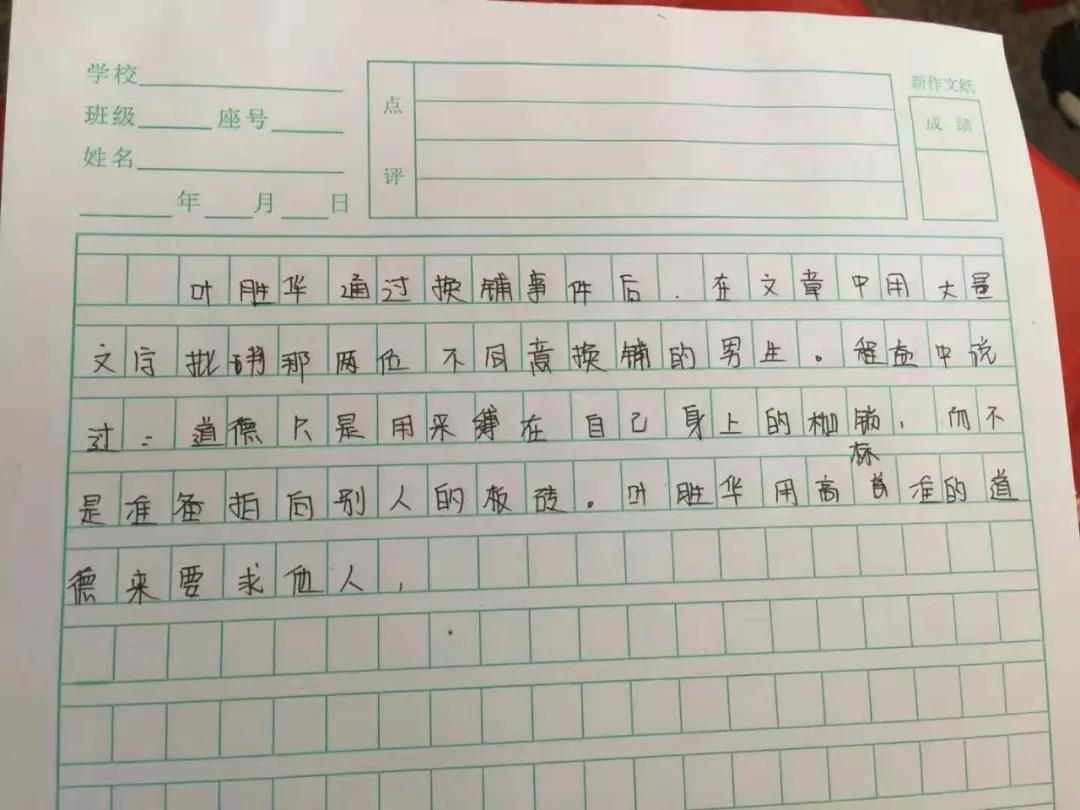 学校
班级 座号
姓名
年 月 日
点评
新作文纸
成绩
叶胜华通过换铺事件后,在文章中用大量
文字批那两位不同意换铺的男生。程益中说
过:道德只是用来缚在自己身上的枷锁,而不
是准备拍向别人的板砖。叶胜华用高标准的道
德来要求他人,